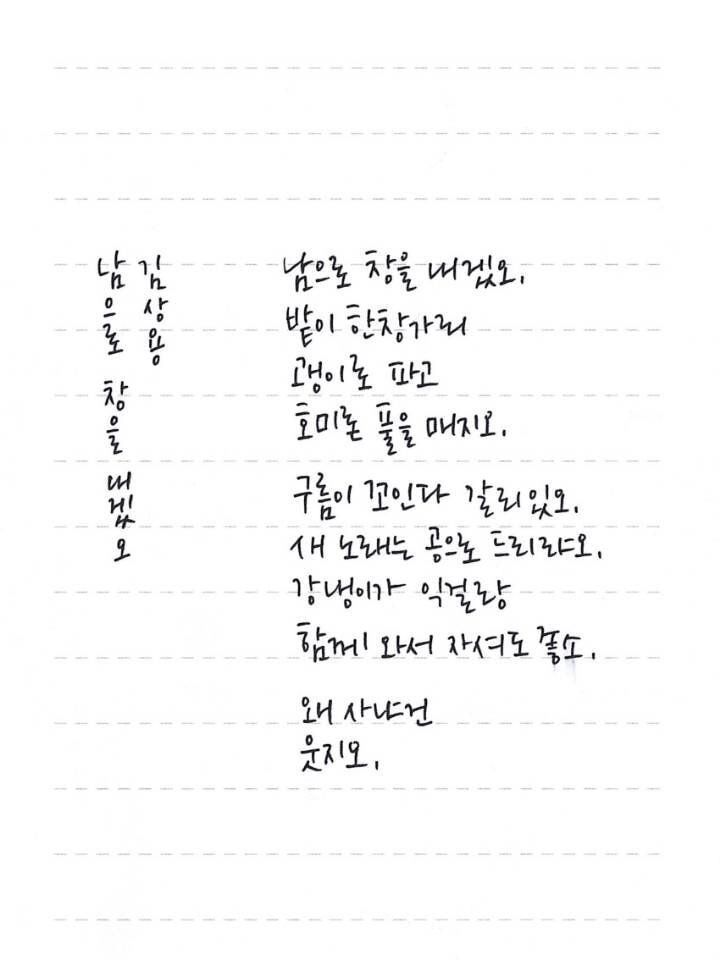 남으로 창을 내겠오
김상용
남으로 창을 내겠오.
밭이 한참가리
괭이로 파고
호미론 풀을 매지오.
구름이 꼬인다 갈리있오.
새 노래는 공으로 드리랴오.
강냉이가 익걸랑
함께 와서 자셔도 좋소.
왜 사냐건
웃지오.